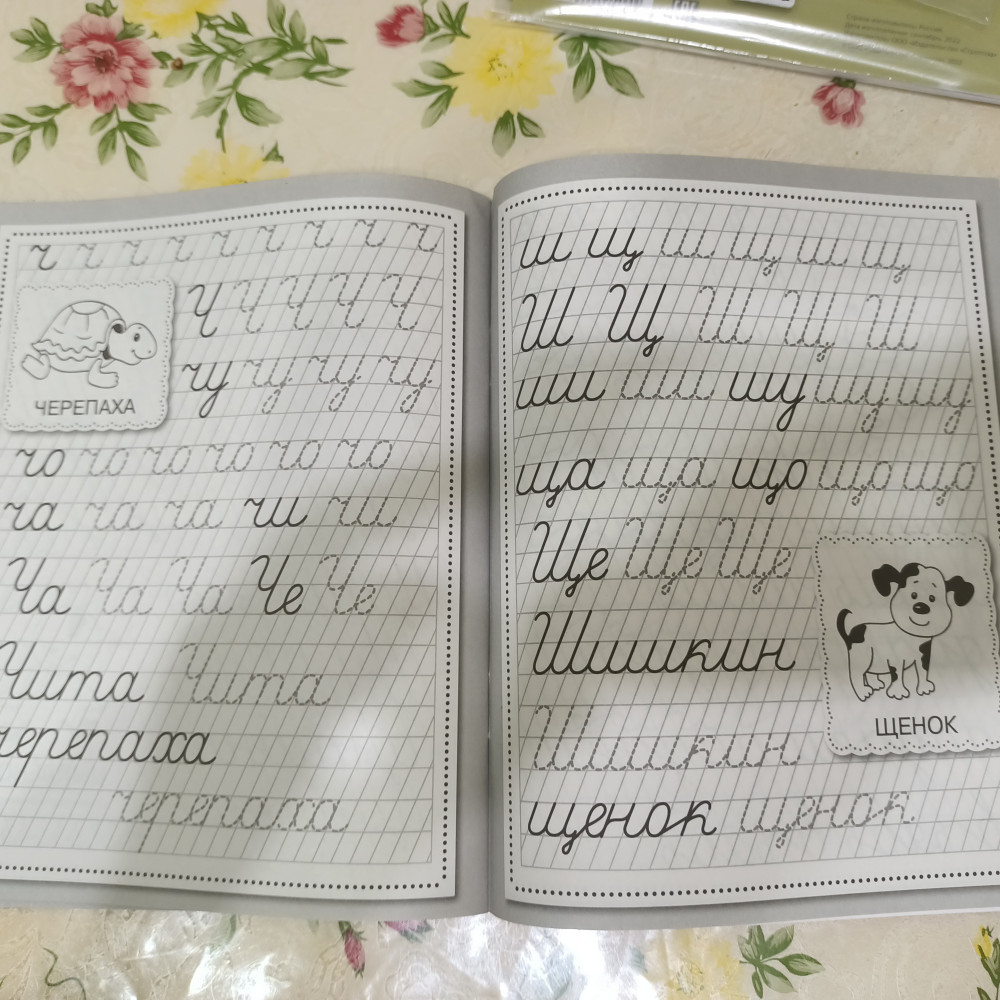 ч ч ч ч ч ч ч ч ч
Ч Ч Ч Ч Ч
чу чу чу чу
ЧЕРЕПАХА
чо чо чо чо чо чо
ча ча ча чи чи
Ча Ча Ча Че Че
Чита Чита
черепаха
черепаха
ш щ ш щ ш щ
Ш Щ Ш Щ Ш
ши ши шу шу шу
ща ща що що що
Ще Ще Ще
Шишкин
ЩЕНОК
Шишкин
щенок щенок